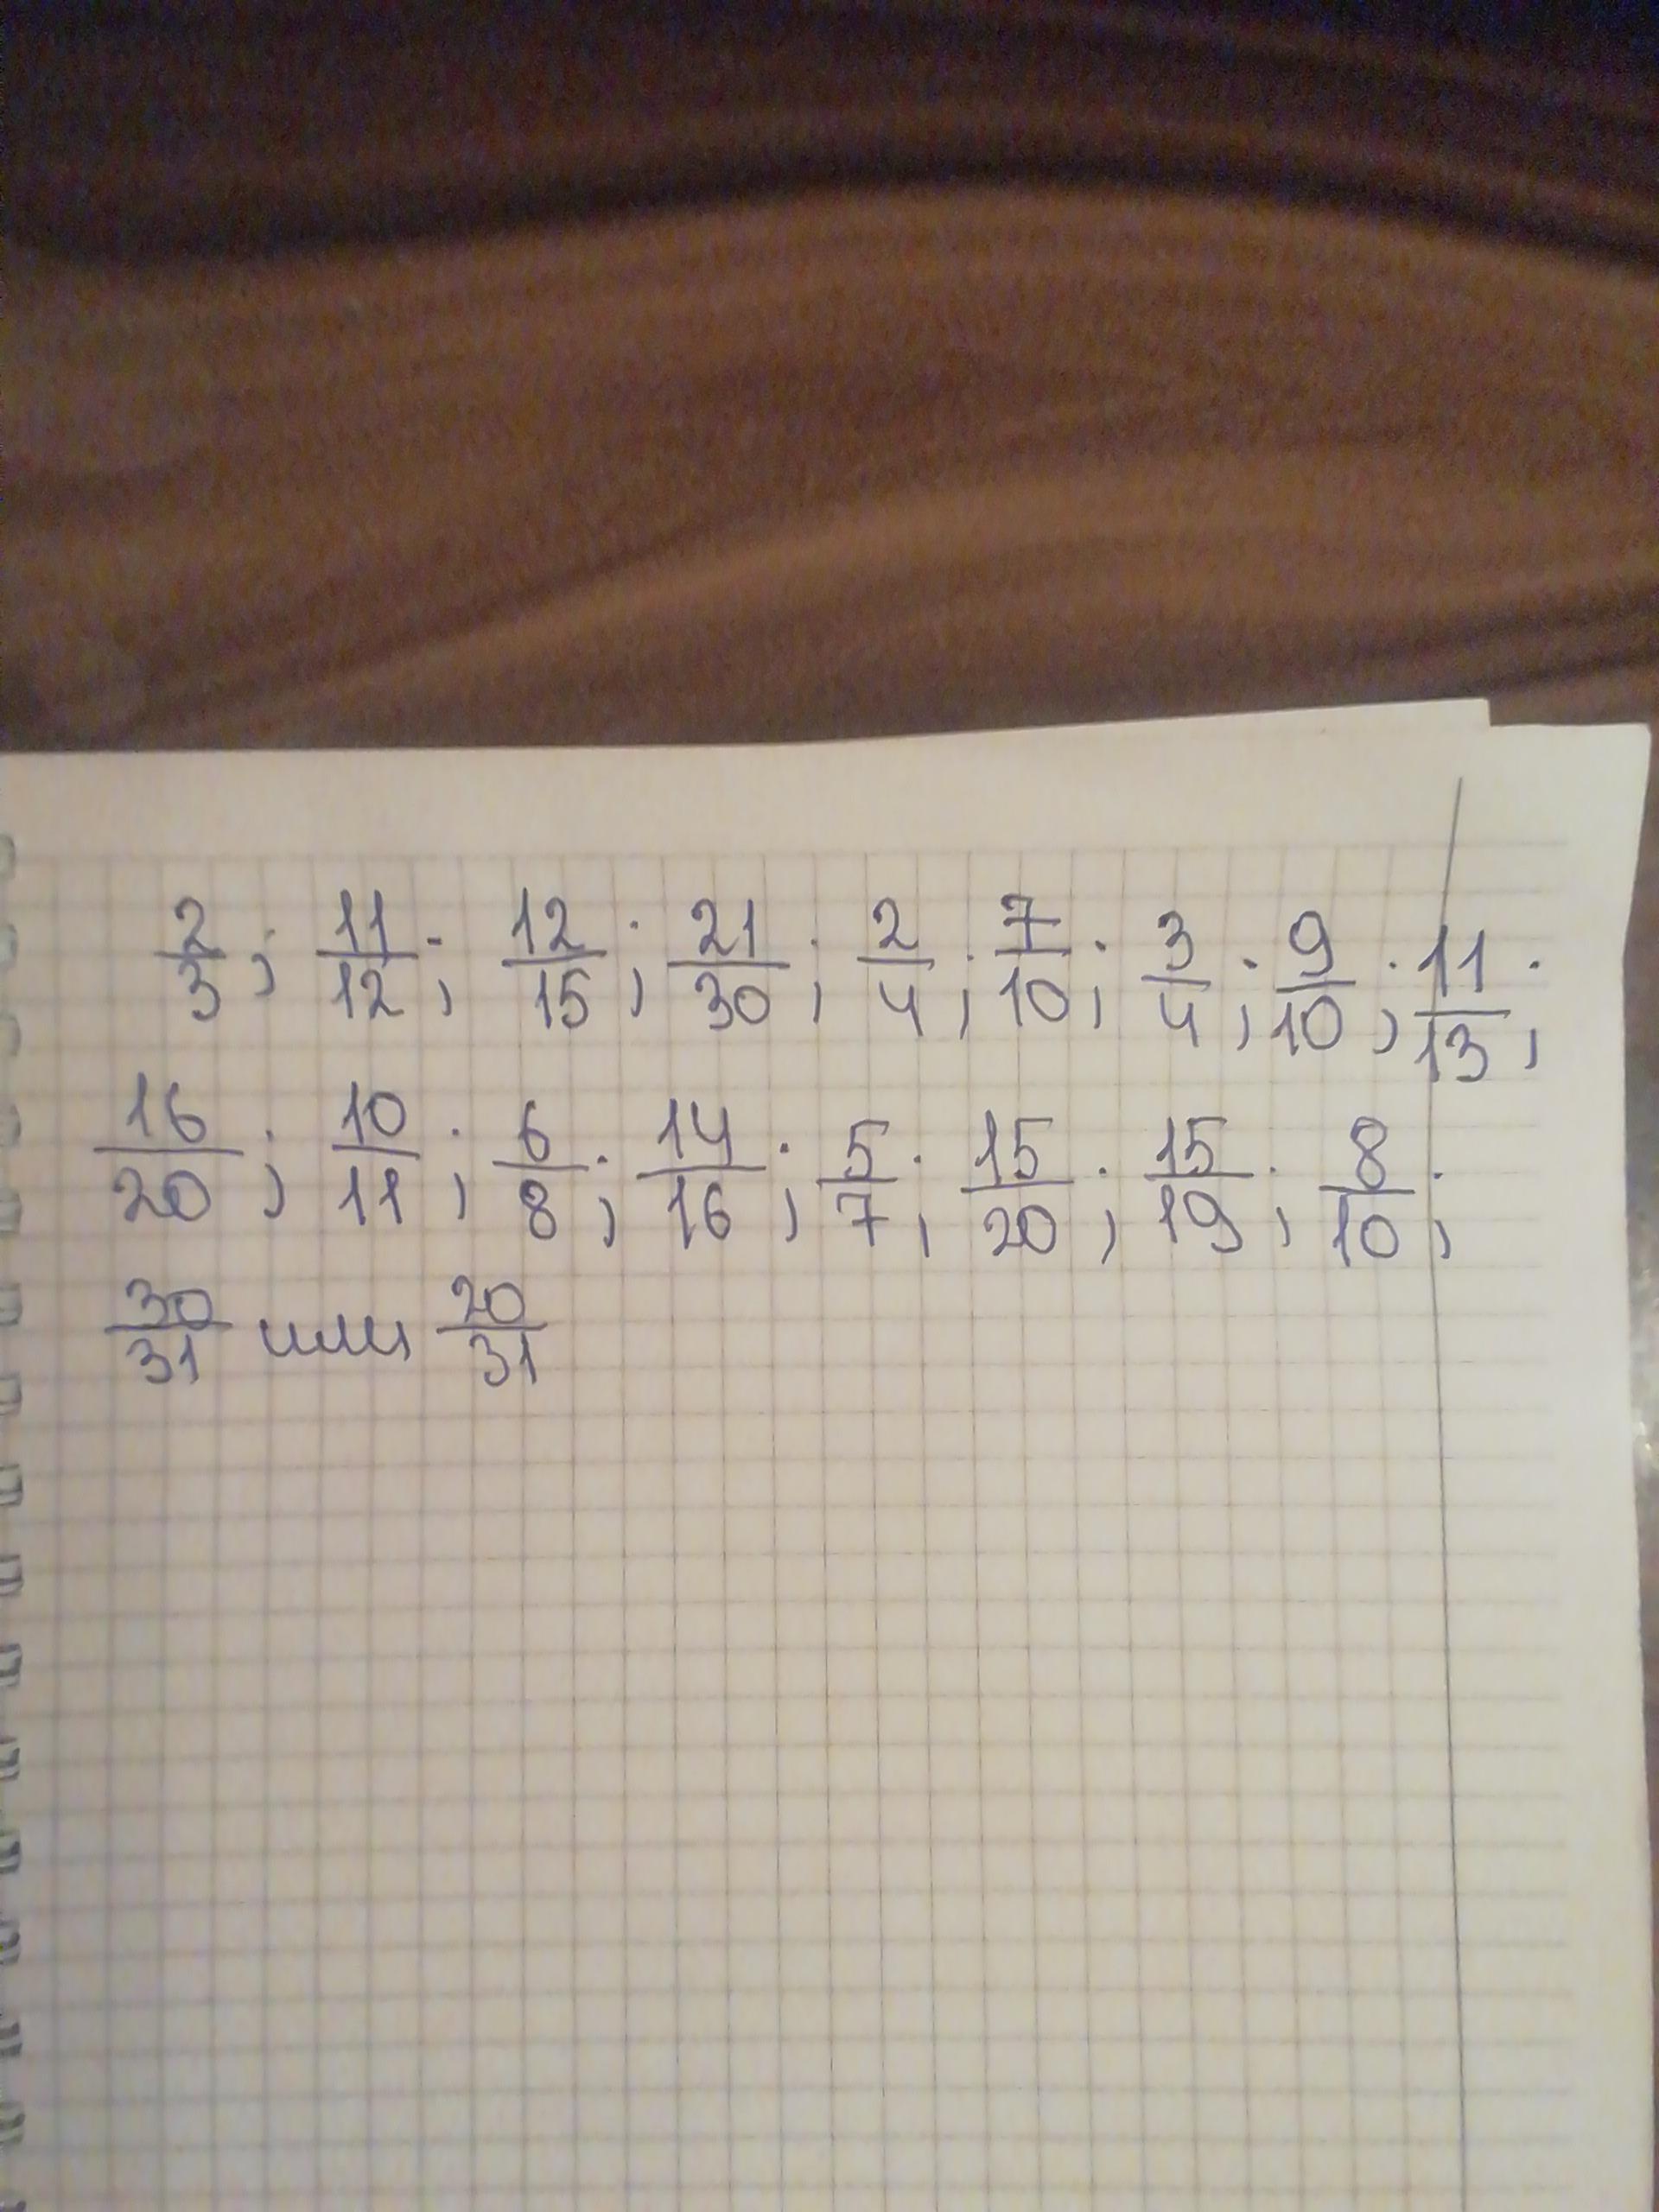 2/3; 11/12; 12/15; 21/30; 2/4; 7/10; 3/4; 9/10; 11/13;
16/20; 10/11; 6/8; 14/16; 5/7; 15/20; 15/19; 8/10;
30/31 или 20/31